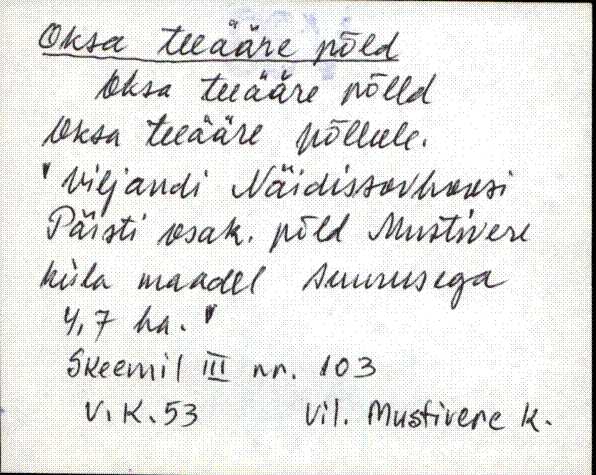 Oksa teeääre põld
Oksa teeääre põlld
Oksa teeääre põllule.
"Viljandi Näidissovhoosi
Päisti osak. põld Mustivere
küla maadel suurusega
4,7 ha."
Skeemil III nr. 103
V.K.53 Vil. Mustivere k.